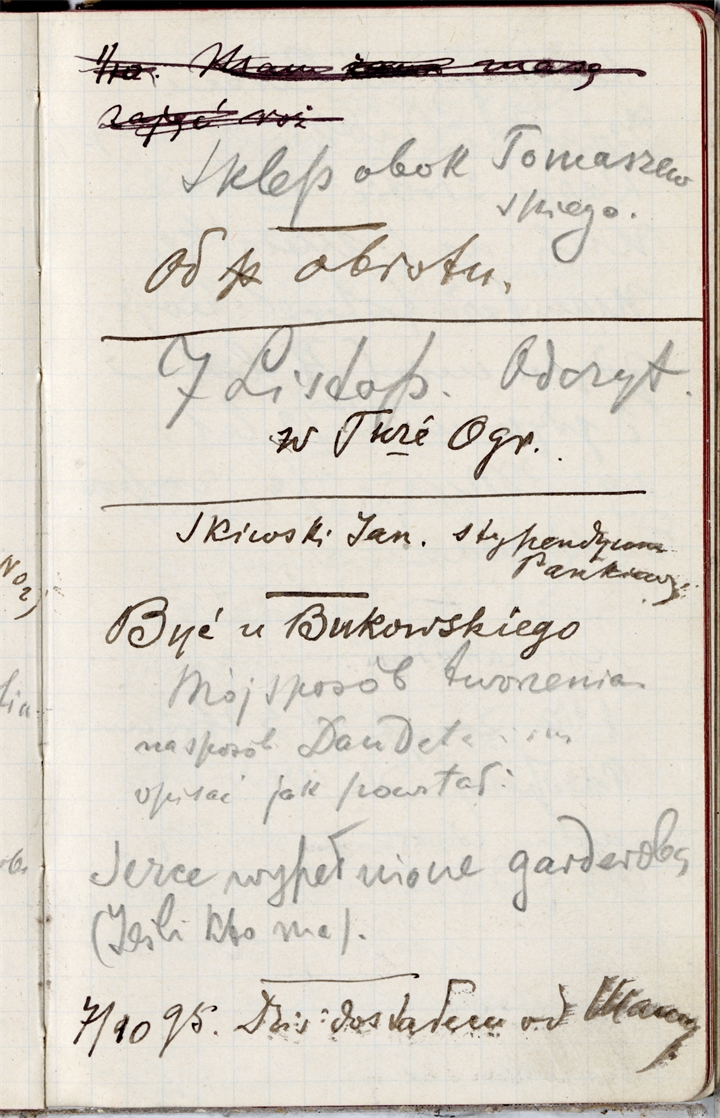 zająć
Sklep obok Tomaszew
skiego.
Od obrotu.
7 Listop. Odczyt.
w Turé Ogr.
Skiwski Jan. stypendyum
Być u Bukowskiego
Mój sposób tworzenia
na sposób Daudeta
opisać jak powstał:
Serce wypełnione garderobą
(Jeśli kto ma).
7/10 95. Dziś dostałem od Mamy